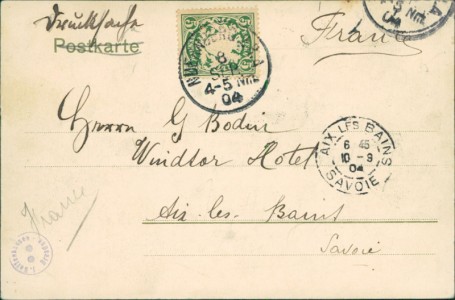 Drucksache
Postkarte
Franc
8
SEP
4-5 Nm.
04
Herrn G Bodin
Windsor Hotel
AIX LES BAINS
6 45
10 - 9
04
SAVOIE
Aix-les-Bains
Savoie
France